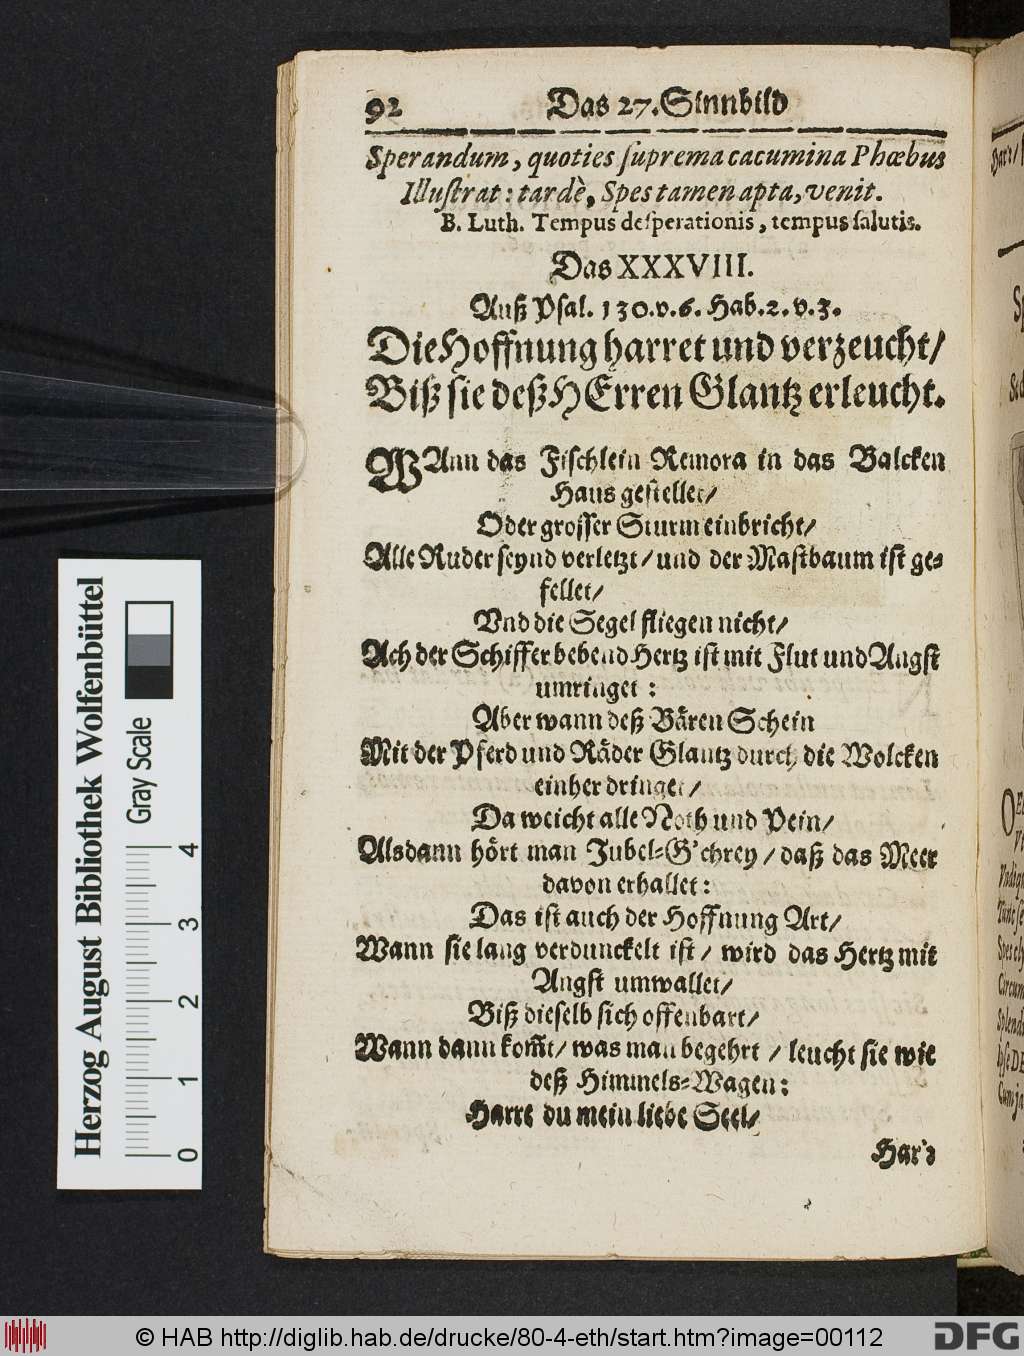 92 Das 27. Sinnbild
Sperandum, quoties ſuprema cacumina Phœbus
Illuſtrat: tardè, Spes tamen apta, venit.
B. Luth. Tempus deſperationis, tempus ſalutis.
Das XXXVIII.
Auß Pſal. 130. v. 6. Hab. 2. v. 3.
Die Hoffnung harret und verzeucht/
Biß ſie deß HErren Glantz erleucht.
WAnn das Fiſchlein Remora in das Balcken
Haus geſtellet/
Oder groſſer Sturm einbricht/
Alle Ruder ſeynd verletzt/ und der Maſtbaum iſt ge-
fellet/
Vnd die Segel fliegen nicht/
Ach der Schiffer bebend Hertz iſt mit Flut und Angſt
umringet:
Aber wann deß Bären Schein
Mit der Pferd und Räder Glantz durch die Wolcken
einher dringet/
Da weicht alle Noth und Pein/
Alsdann hört man Jubel-G'chrey/ daß das Meer
davon erhallet:
Das iſt auch der Hoffnung Art/
Wann ſie lang verdunckelt iſt/ wird das Hertz mit
Angſt umwallet/
Biß dieſelb ſich offenbart/
Wann dann kom̃t/ was man begehrt/ leucht ſie wie
deß Himmels-Wagen:
Harre du mein liebe Seel/
Herzog August Bibliothek Wolfenbüttel
Gray Scale
0 1 2 3 4
© HAB http://diglib.hab.de/drucke/80-4-eth/start.htm?image=00112
DFG